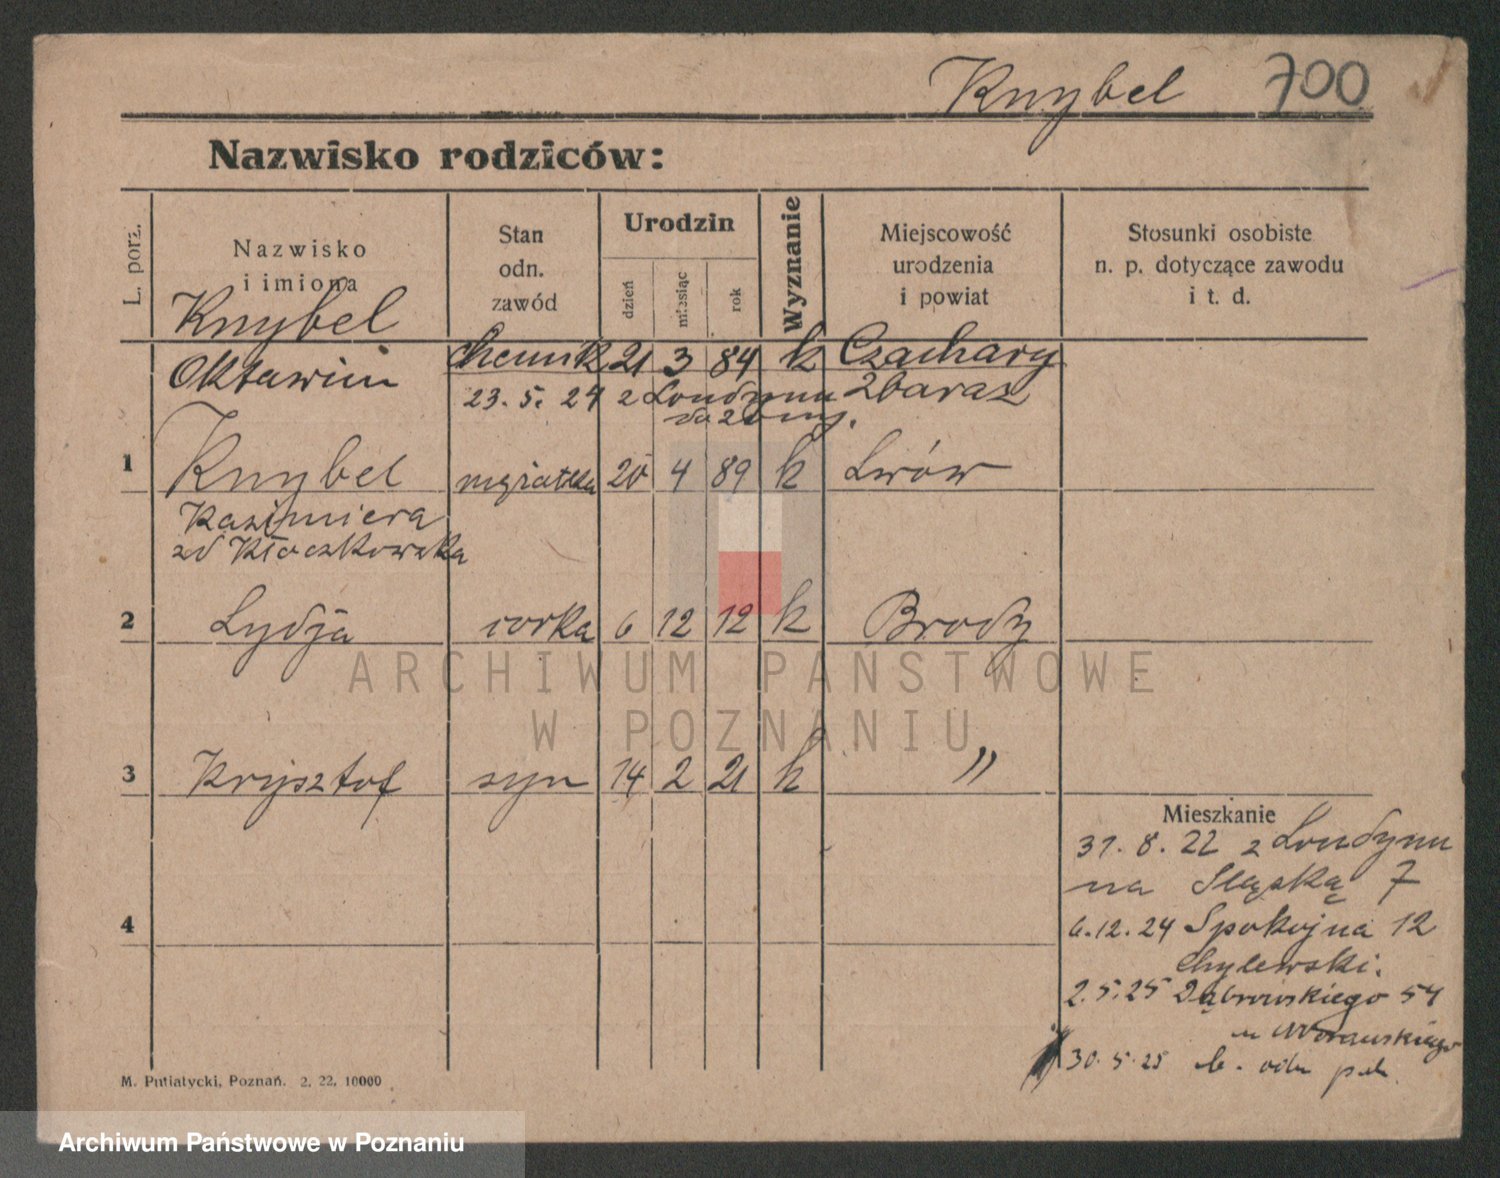 Knybel 700
Nazwisko rodziców:
L. porz.
Nazwisko
i imiona
Stan
odn.
zawód
Urodzin
dzień
miesiąc
rok
Wyznanie
Miejscowość
urodzenia
i powiat
Stosunki osobiste
n. p. dotyczące zawodu
i t. d.
Knybel
Oktawiu chemik 21 3 84 k Czachary
23. 5. 24 z Londynu Zbaraż
1 Knybel mężatka 20 4 89 k Lwów
Kazimiera
zd Kłoczkowska
2 Lydja corka 6 12 12 k Brody
3 Krysztof syn 14 2 21 k "
4
Mieszkanie
31. 8. 22 z Londynu
na Sląską 7
6.12.24 Spokojna 12
Chylewski.
2.5.25 Dąbrowskiego 54
u Morawskiego
30.5.25
M. Putiatycki, Poznań. 2. 22. 10000
ARCHIWUM PAŃSTWOWE
W POZNANIU
Archiwum Państwowe w Poznaniu